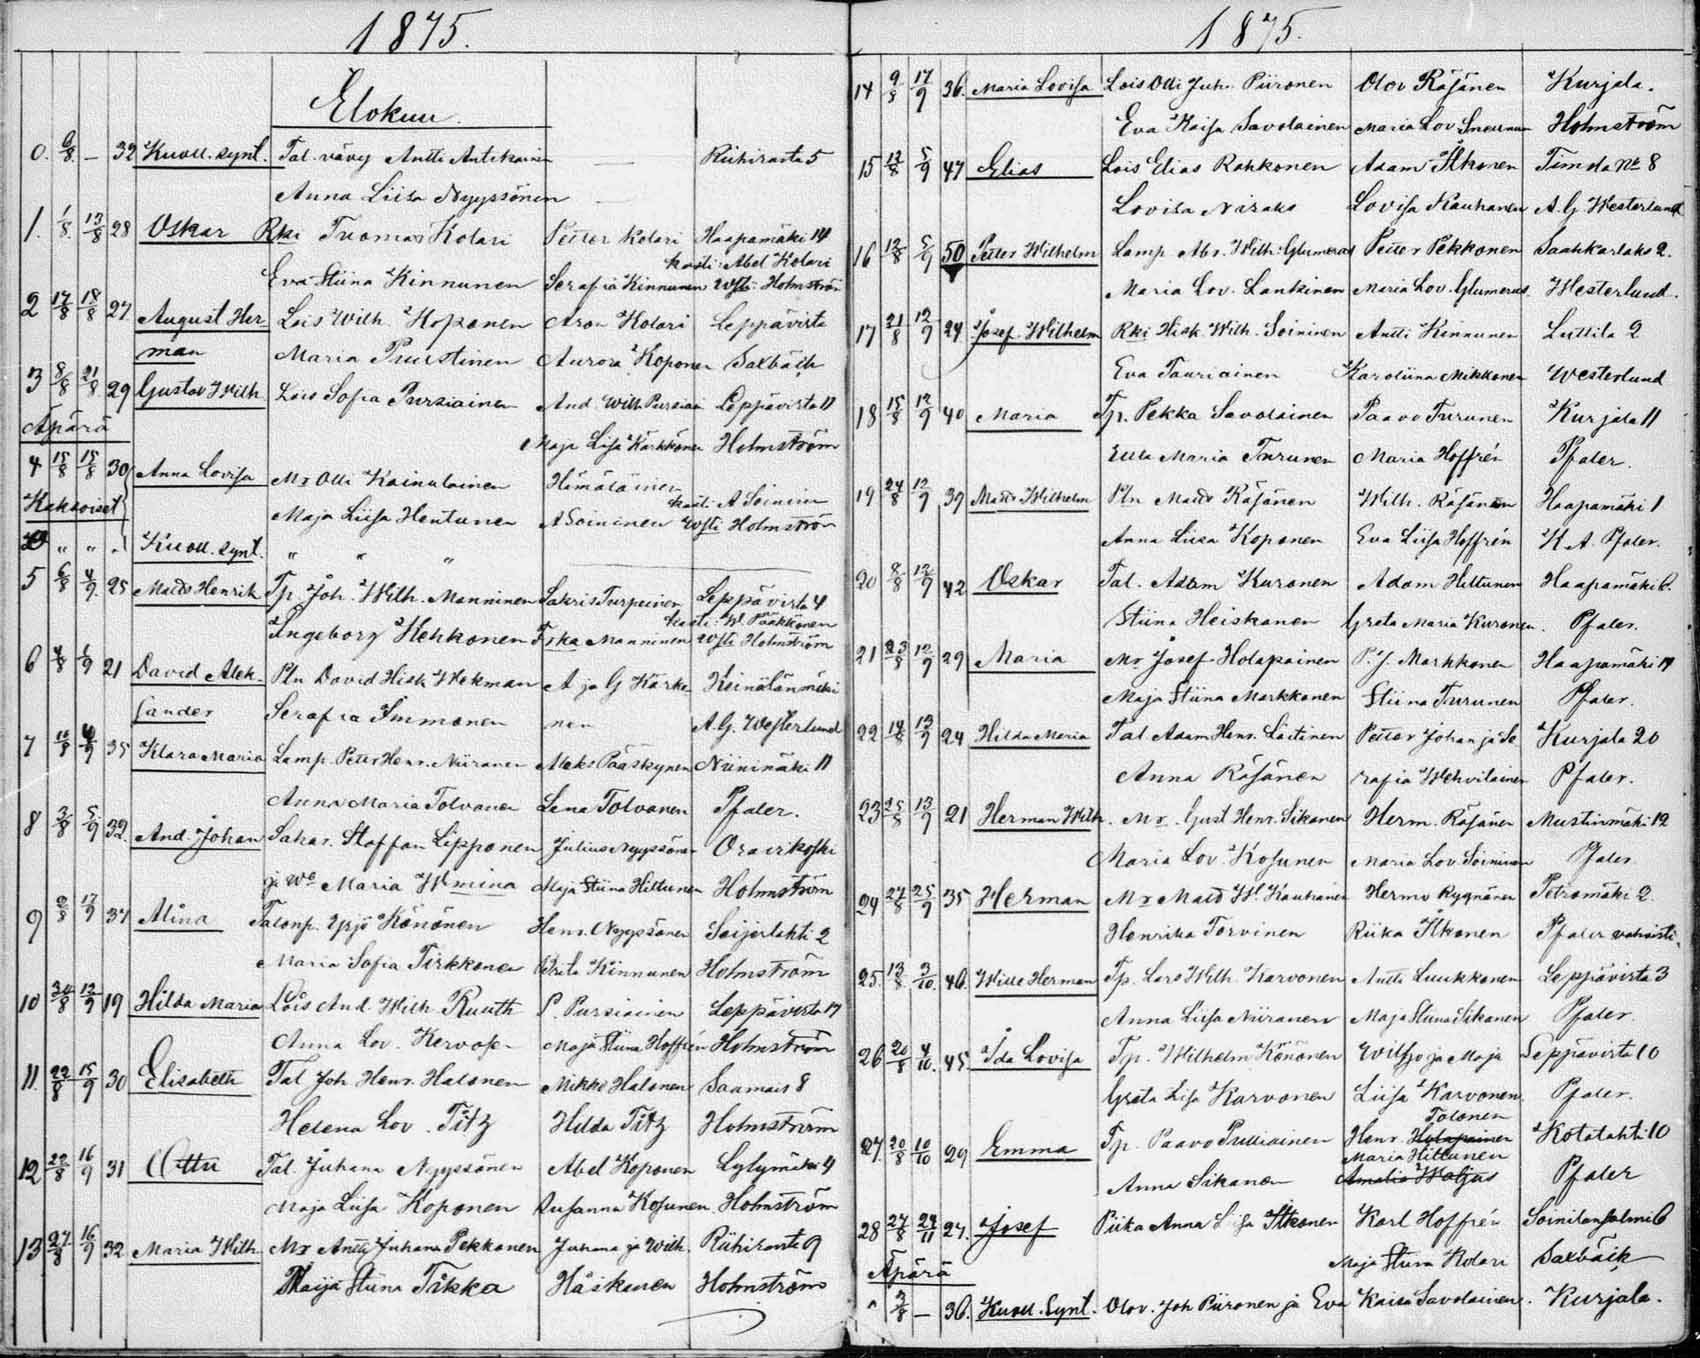 1875.
Elokuu.
0. 6/8 — 32 Kuoll. synt. Tal. vävy Antti Antikainen — Riihiranta 5
Anna Liisa Nyyssönen —
1. 1/8 13/8 28 Oskar Rki Tuomas Kolari Petter Kolari Haapamäki 14
kasti: Abel Kolari
Eva Stiina Kinnunen Serafia Kinnunen wsti Holmström
2 17/8 18/8 27 August Her- Lois Wilh. Koponen Aron Kolari Leppävirta
man Maria Puustinen Aurora Koponen Saxbäck
3 8/8 21/8 29 Gustav Wilh Lois Sofia Pursiainen And. Wilh Pursiai Leppävirta 11
Äpärä
Maja Liisa Kärkkönen Holmström
4 15/8 15/8 30 Anna Lovisa Mr Olli Kainulainen Hämäläinen
Kaksoiset
kasti A Soininen
Maja Liisa Hentunen A Soininen wsti Holmström
" " " Kuoll. synt. " " "
5 6/8 4/9 25 Matts Henrik Tp. Joh. Wilh. Manninen Sakris Turpeinen Leppävirta 4
kasti: W. Pääkkönen
Ingeborg Hehkonen Fska Manninen wsti Holmström
6 4/8 1/9 21 David Alek- Ptn David Hisk Wekman A ja G Kärkä- Keinälänmäki
sander Serafia Immonen nen A. G. Westerlund
7 10/8 4/9 35 Klara Maria Lamp. Petter Henr. Niiranen Aleks Pääskynen Niinimäki 11
Anna Maria Tolvanen Lena Tolvanen Pfaler.
8 3/8 5/9 32 And. Johan Sakar. Staffan Lipponen Julius Nyyssönen Oravikoski
ja Wo Maria Wmina Maja Stiina Hiltunen Holmström
9 2/8 17/9 37 Alina Talonp. Yrjö Könönen Henr. Nyyssönen Saijerlahti 2
Maria Sofia Tirkkonen Brita Kinnunen Holmström
10 30/8 12/9 19 Hilda Maria Lois And Wilh. Ruuth P. Pursiainen Leppävirta 17
Anna Lov. Kervop- Maja Stiina Hoffrén Holmström
11. 22/8 15/9 30 Elisabeth Tal Joh Henr. Halonen Mikko Halonen Saamais 8
Helena Lov. Titz Hilda Titz Holmström
12 22/8 16/9 31 Ottu Tal. Juhana Nyyssönen Abel Koponen Lylymäki 4
Maja Liisa Koponen Susanna Kosunen Holmström
13 27/8 16/9 32 Maria Wilh. Mr Antti Juhana Pekkanen Juhana ja Wilh. Riihiranta 9
Maija Stiina Tikka Häiskanen Holmström
1875.
14 9/8 17/9 36. Maria Lovisa Lois Olli Juh. Piironen Olov Räsänen Kurjala.
Eva Kaisa Savolainen Maria Lov Snellman Holmström
15 12/8 5/9 47 Elias Lois Elias Rahkonen Adam Itkonen Timola No 8
Lovisa Niraks Lovisa Kauhanen A. G. Westerlund
16 12/8 5/9 50 Petter Wilhelm Lamp. Abr. Wilh. Glumerus Petter Pekkonen Saahkarlaks 2.
Maria Lov. Lankinen Maria Lov. Glumerus Westerlund.
17 21/8 12/9 24 Josef Wilhelm Rki Hisk Wilh. Soininen Antti Kinnunen Luttila 2
Eva Tauriainen Karoliina Mikkonen Westerlund
18 15/8 12/9 40 Maria Tp. Pekka Savolainen Paavo Turunen Kurjala 11
Ulla Maria Turunen Maria Hoffrén Pfaler.
19 24/8 12/9 39 Matts Wilhelm Ptn Matts Räsänen Wilh. Räsänen Haapamäki 1
Anna Liisa Koponen Eva Liisa Hoffrén K. A. Pfaler.
20 8/8 12/9 42 Oskar Tal. Adam Kuronen Adam Hiltunen Haapamäki 6.
Stiina Heiskanen Greta Maria Kuronen. Pfaler.
21 23/8 12/9 29 Maria Mr Josef Holapainen P. J. Markkanen Haapamäki 14
Maja Stiina Markkanen Stiina Turunen Pfaler.
22 14/8 13/9 24 Hilda Maria Tal Adam Henr. Laitinen Petter Johan ja Se Kurjala 20
Anna Räsänen rafia Wehviläinen Pfaler.
23 25/8 13/9 21 Herman Wilh. Mr. Gust Henr. Sikanen Herm. Räsänen Mustinmäki 12
Maria Lov. Kosunen Maria Lov. Soininen Pfaler.
24 27/8 25/9 35 Herman Mr Matts W. Kauhanen Herm. Ryynänen Petromäki 2.
Henrika Torvinen Riika Itkonen Pfaler vahvisti.
25. 13/8 3/10. 46. Wille Herman Tp. Lars Wilh. Karvonen Antti Luukkonen Leppävirta 3
Anna Liisa Niiranen Maja Stiina Sikanen Pfaler.
26 20/8 4/10. 45 Ida Lovisa Tp. Wilhelm Könönen Wilho ja Maja Leppävirta 10
Greta Lisa Karvonen Liisa Karvonen Pfaler.
Tolonen
27. 20/8 10/10 29 Emma Tp. Paavo Pulliainen Henr. Holapainen Kotalahti 10
Maria Hiltunen
Anna Sikanen Amalia Waljus Pfaler
28 27/8 24/11 27. Josef Piika Anna Lisa Itkonen Karl Hoffrén Soinilansalmi 6
Maja Stiina Kolari Saxbäck
Äpärä
" 3/8 — 36. Kuoll. Synt. Olov. Joh Piironen ja Eva Kaisa Savolainen. Kurjala.